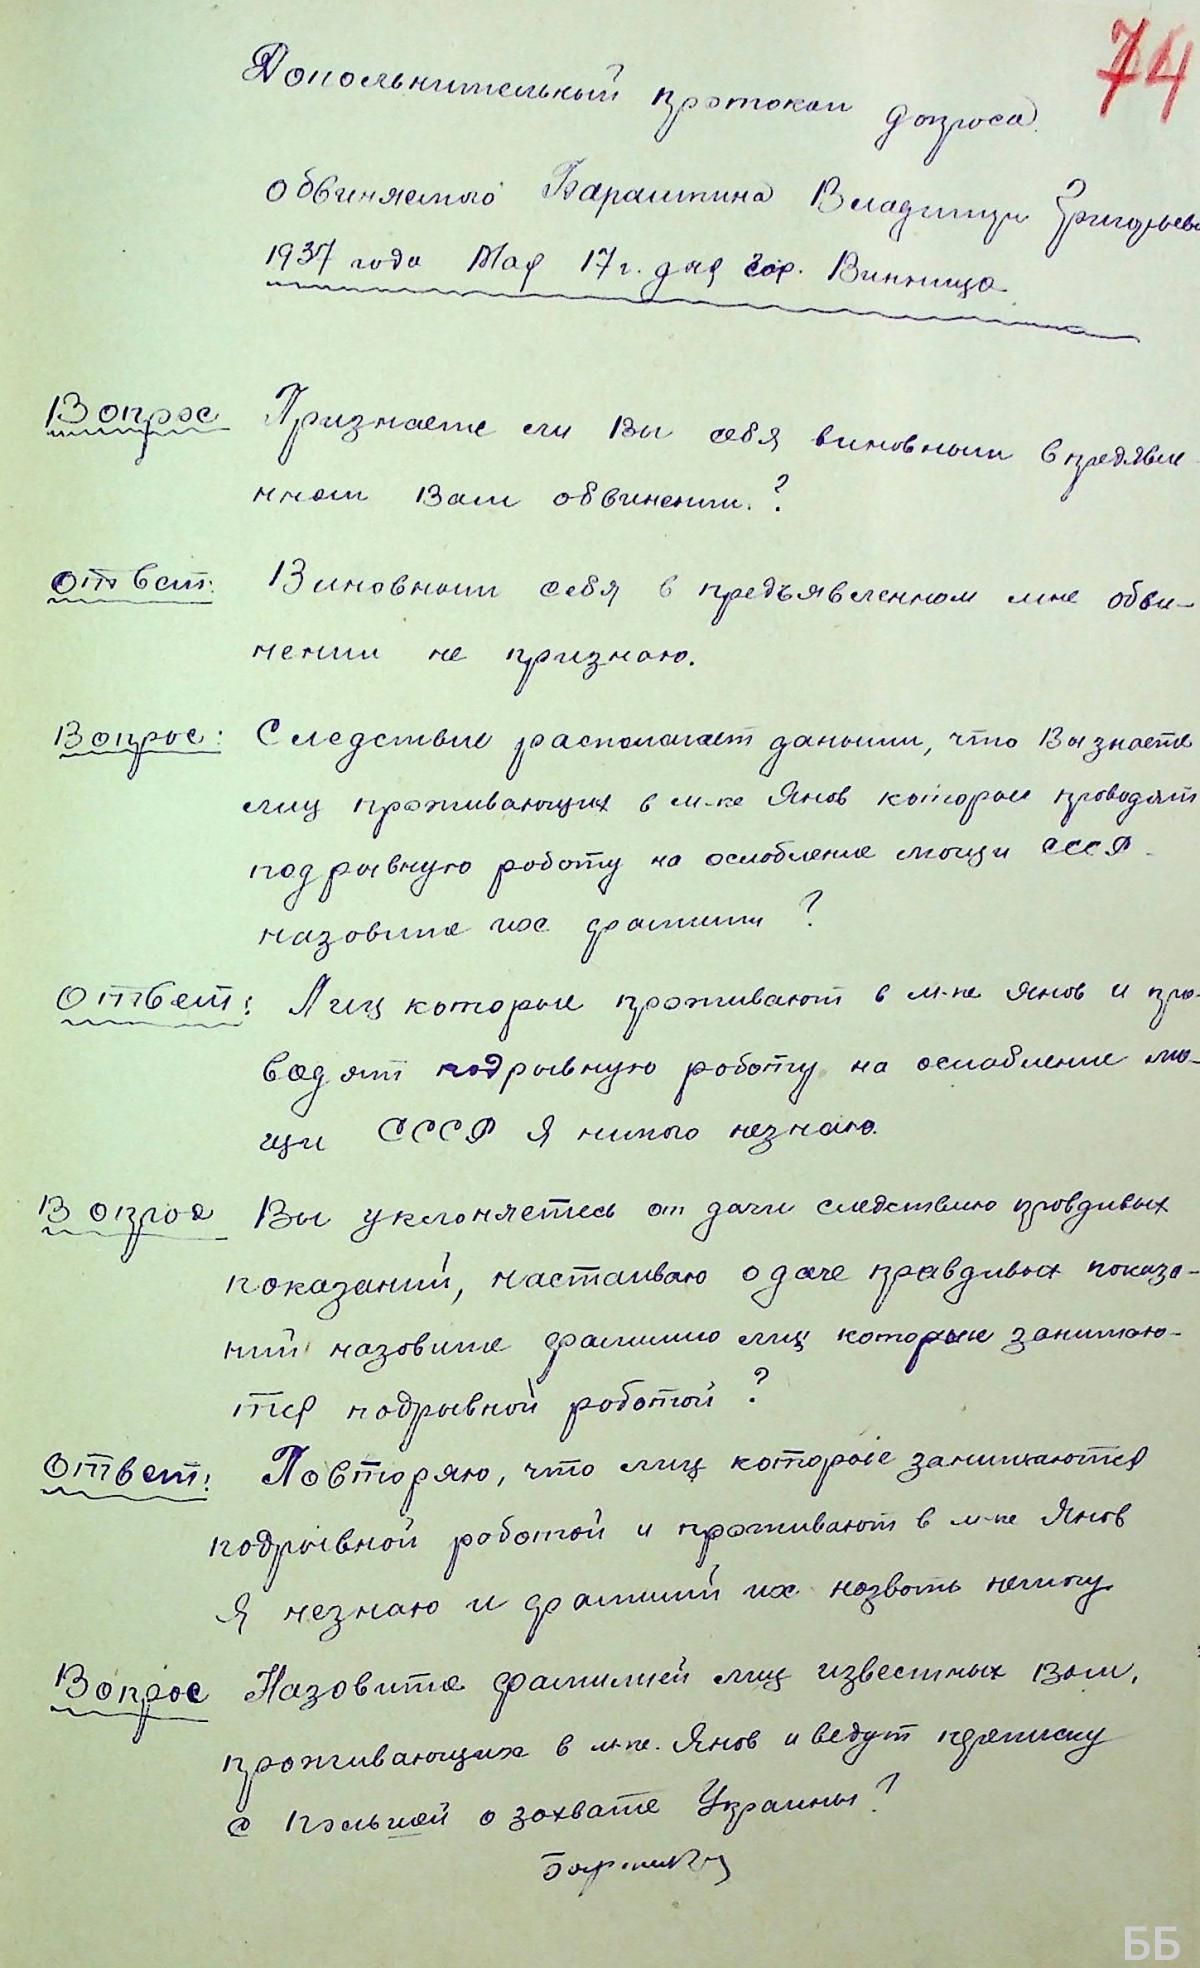 74
Дополнительный протокол допроса
обвиняемого Бараштина Владимир Григорьев
1937 года Мая 17 г. дня гор. Винница
Вопрос Признаете ли Вы себя виновным в предявле
нном Вам обвинении.?
Ответ: Виновным себя в предъявленном мне обви-
нении не признаю.
Вопрос: Следствие располагает даными, что Вы знаете
лиц проживающих в м-ке Янов которые проводят
подрывную роботу на ослобление мощи СССР.
назовите их фамилии ?
Ответ: Лиц которые проживают в м-ке Янов и про-
водят подрывную роботу на ослабление мо-
щи СССР я никого незнаю.
Вопрос Вы уклоняетесь от дачи следствию правдивых
показаний, настаиваю о даче правдивых показа-
ний назовите фамилию лиц которые занимаю-
тся подрывной роботой ?
Ответ: Повторяю, что лиц которые занимаются
подрывной роботой и проживают в м-ке Янов
я незнаю и фамилий их назвать немогу
Вопрос Назовите фамилией лиц известных Вам,
проживающих в м-ке. Янов и ведут переписку
с Польшей о захвате Украины?
ББ